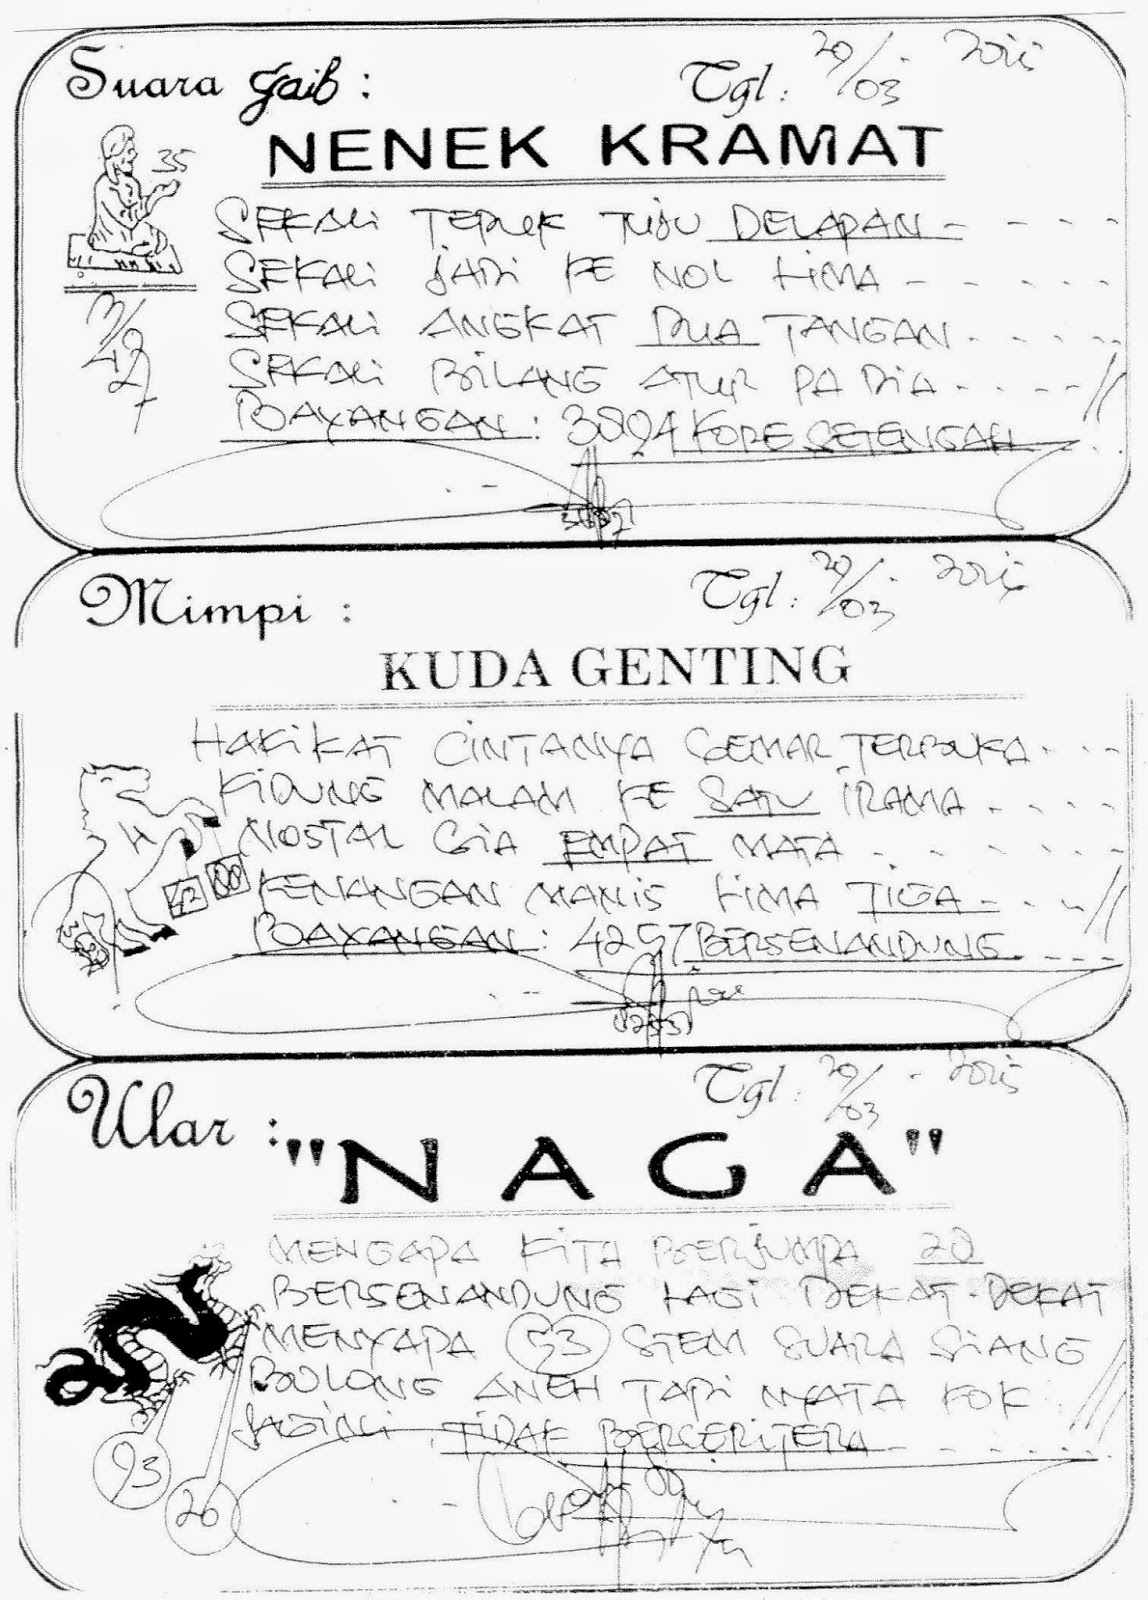 Suara gaib :
Tgl : 20/03 - 2015
NENEK KRAMAT
35
SEKALI TEPUK TUJU DELAPAN - - - -
SEKALI JADI KE NOL LIMA - - - - -
SEKALI ANGKAT DUA TANGAN - - - - -
SEKALI BILANG ATUR PA DIA - - - - //
BAYANGAN : 3894 KODE SETENGAH
Mimpi :
Tgl : 20/03 - 2015
KUDA GENTING
HAKIKAT CINTANYA SEMAR TERBUKA - - -
KIDUNG MALAM KE SATU IRAMA - - - -
NOSTAL GIA EMPAT MATA - - - - - -
KENANGAN MANIS LIMA TIGA - - - //
BAYANGAN : 4257 BERSENANDUNG - - -
Ular :
Tgl : 20/03 - 2015
"NAGA"
MENGAPA KITA BERJUMPA 20
BERSENANDUNG LAGI DEKAT-DEKAT
MENYAPA 53 STEM SUARA SIANG
BOLONG ANEH TAPI NYATA KOK
TIDAK BERCERITERA - - - - -
93
26